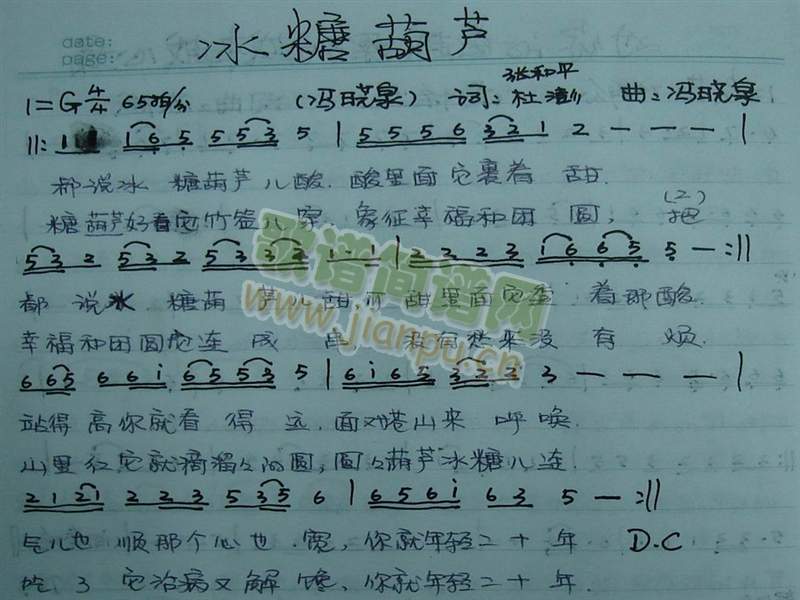 date:
page:
冰糖葫芦
1=G 4/4 65拍/分 (冯晓泉) 词:张和平 杜 曲:冯晓泉
‖: 1 1 1 6 5 5 5 3 5 | 5 5 5 6 3 2 1 2 — — — |
都说冰 糖葫芦儿酸.酸里面它裹着 甜.
糖葫芦好看它竹签儿穿 象征幸福和团 圆, (2) 把
5 3 2 5 3 2 5 3 3 2 1·1 | 2 2 2 3 1 6 6 5 5 — :‖
都 说冰 糖葫 芦儿甜.可 甜里面它 着那酸
幸福和团圆它连 成 串 没有愁来没 有 烦.
6 6 5 6 6 i 6 5 5 3 5 | 6 i 6 5 3 2 2 3 — — — |
站得 高你就看 得 远.面对 山来 呼唤.
山里红它就滴溜々的圆,圆々葫芦冰糖儿连.
2 1 2 1 2 2 3 5 3 5 6 | 6 5 6 i 6 3 5 — :‖
气儿也 顺那个心也.宽,你就年轻二十 年 D.C
吃 了 它治病又解 馋,你就年轻二十 年.
歌谱简谱网
www.jianpu.cn